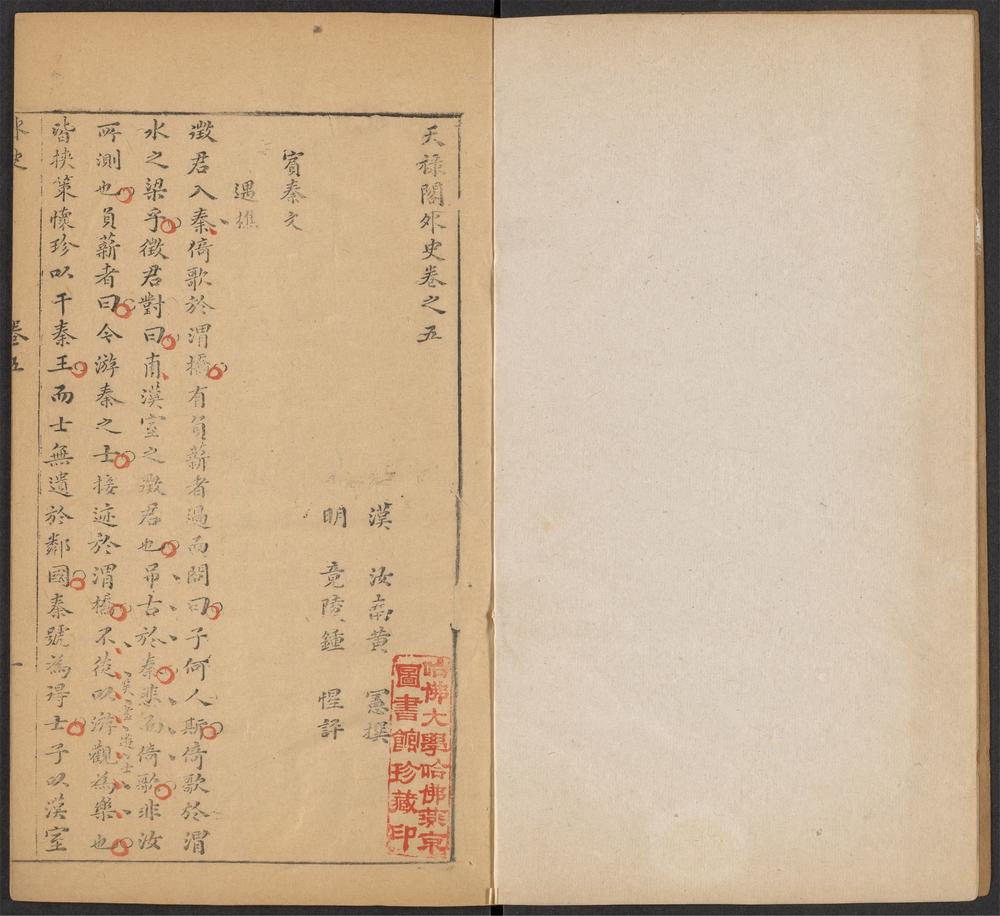 天禄閣外史卷之五
漢 汝南黄 憲撰
明 竟陵鍾 惺評
賓秦文
遇樵
徵君入秦倚歌於渭橋有負薪者過而問曰子何人斯倚歌於渭
水之梁乎徵君對曰甫漢室之徵君也吊古於秦悲而倚歌非汝
所測也負薪者曰今游秦之士接迹於渭橋不徒以游觀為樂也
皆挾策懷珍以干秦王而士無遺於鄰國秦號為得士子以漢室
外史
卷五
一
哈佛大學哈佛燕京
圖書館珍藏印